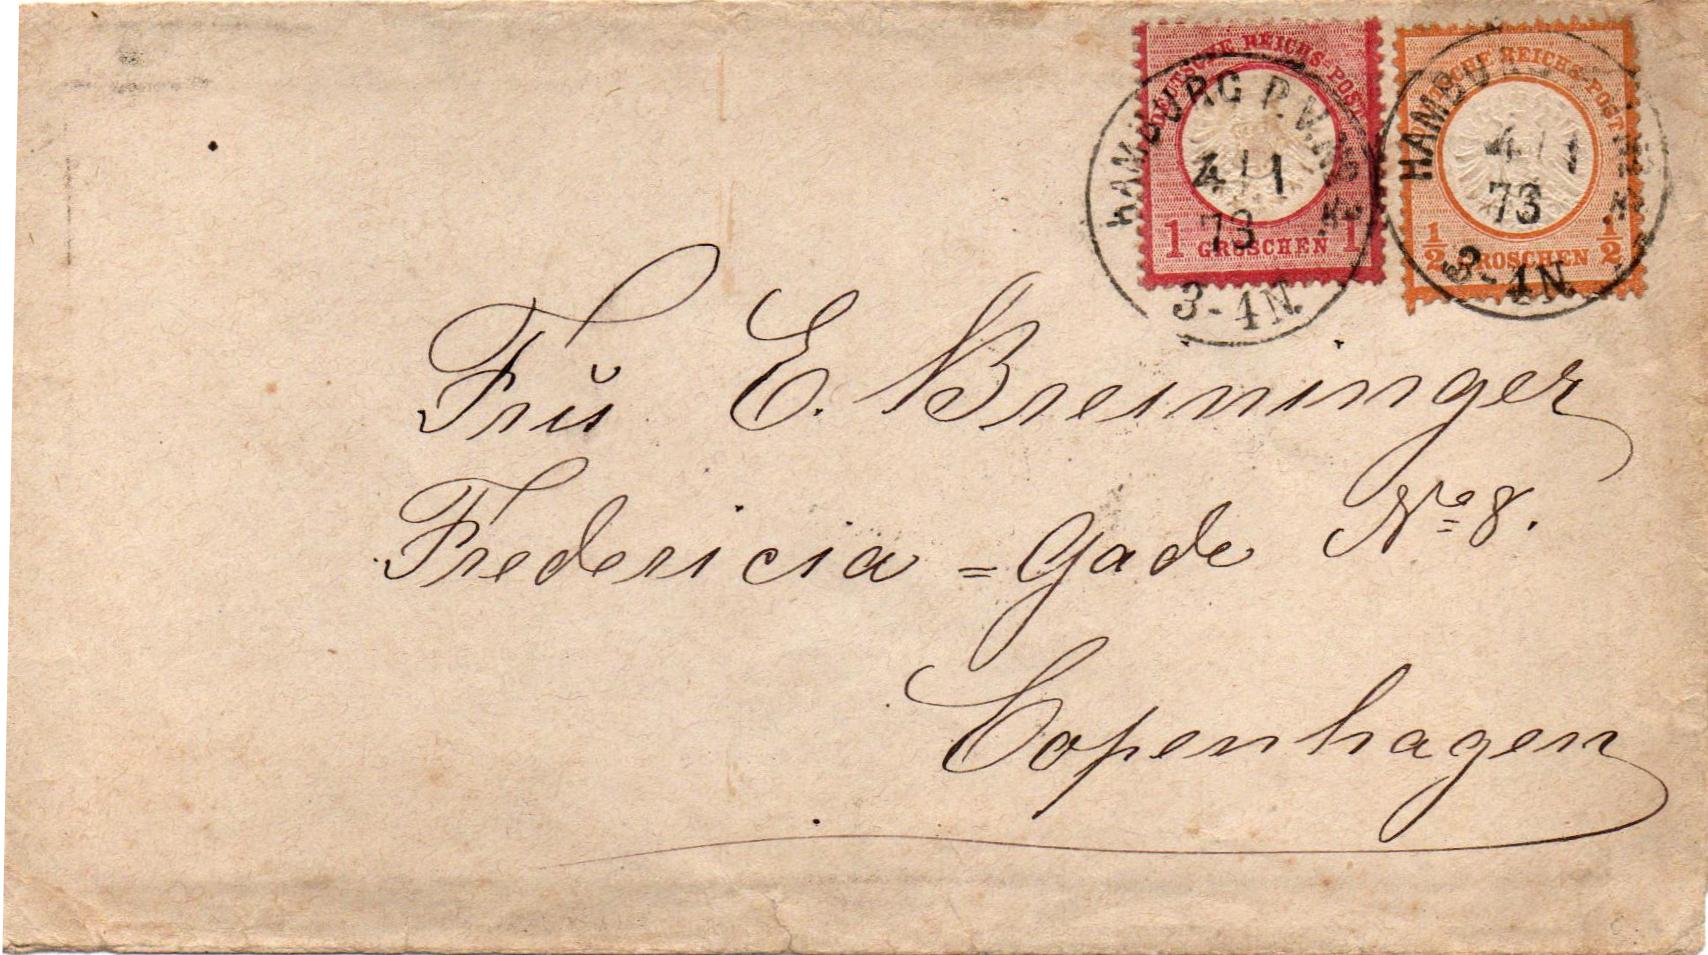 DEUTSCHE REICHS-POST
1 GROSCHEN 1
DEUTSCHE REICHS-POST
1/2 GROSCHEN 1/2
HAMBURG P.V.
4 1
73
3-4N.
HAMBURG
4 1
73
3-4N
Frŭ E. Breininger
Fredericia=Gade No 8.
Copenhagen